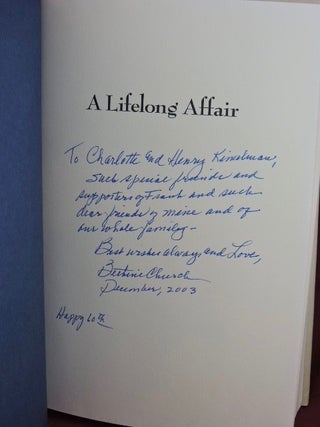 A Lifelong Affair
To Charlotte and Henry Kimelman,
Such special friends and
supporters of Frank and such
dear friends of mine and of
our whole family –
Best wishes always and Love,
Bethine Church
December, 2003
Happy 60th